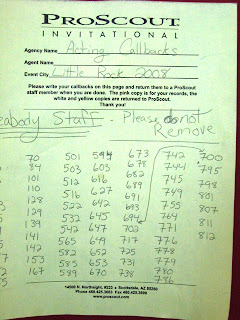 PROSCOUT
INVITATIONAL
Agency Name Acting Callbacks
Agent Name
Event City Little Rock 2008
Please write your callbacks on this page and return them to a ProScout
staff member when you are done. The pink copy is for your records, the
white and yellow copies are returned to ProScout.
Thank you!
eabody Staff - Please do not
Remove
70 501 594 673 742 700
84 503 603 678 744 795
101 512 616 682 745 798
110 516 627 689 749
128 522 642 691 755 801
129 532 645 692 764 807
139 542 647 694 771 811
142 565 649 702 776 812
153 582 652 717 777
167 585 653 725 778
589 670 731 779
738 780
786
14500 N. Northsight, #223 Scottsdale, AZ 85260
www.proscout.com